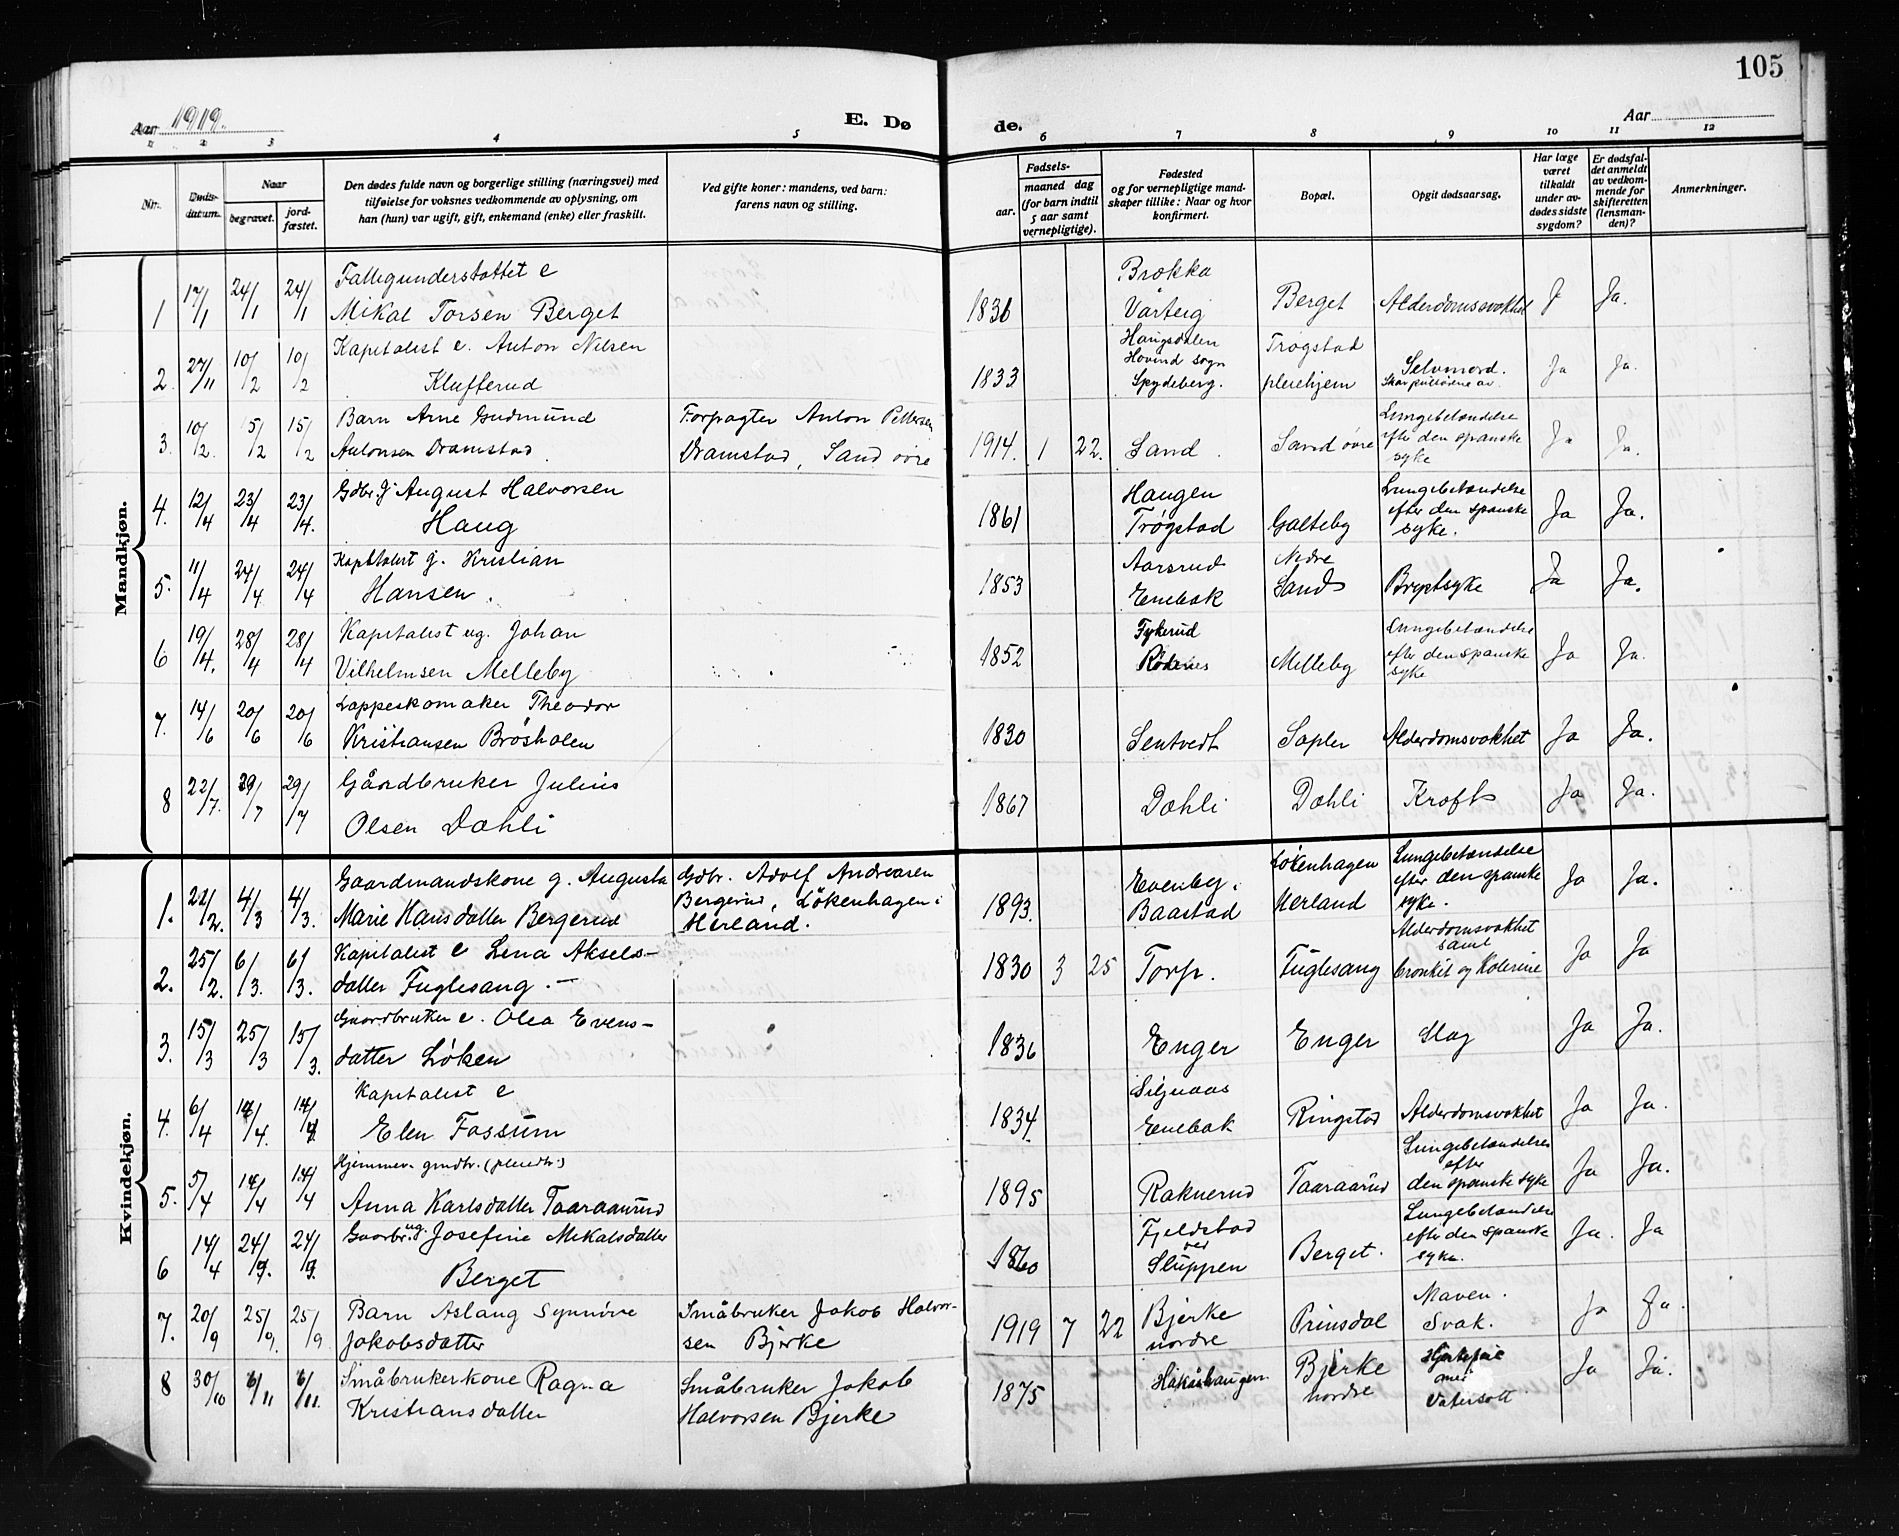 105
Aar 1919.
E. Dø
de.
Aar
1 2 3 4 5 6 7 8 9 10 11 12
Nr.
Døds-
datum.
Naar
begravet.
jord-
fæstet.
Den dødes fulde navn og borgerlige stilling (næringsvei) med
tilføielse for voksnes vedkommende av oplysning, om
han (hun) var ugift, gift, enkemand (enke) eller fraskilt.
Ved gifte koner: mandens, ved barn:
farens navn og stilling.
Fødsels-
aar.
maaned dag
(for barn indtil
5 aar samt
vernepligtige).
Fødested
og for vernepligtige mand-
skaper tillike: Naar og hvor
konfirmert.
Bopæl.
Opgit dødsaarsag.
Har læge
været
tilkaldt
under av-
dødes sidste
sygdom?
Er dødsfal-
det anmeldt
av vedkom-
mende for
skifteretten
(lensman-
den)?
Anmerkninger.
Mandkjøn.
1 17/1 24/1 24/1
Fattigunderstøttet e
Mikal Torsen Berget
1836
Brekka
Varteig
Berget
Alderdomssvakhet
J Ja.
2. 10/2 10/2
Kapitalist e. Anton Nilsen
Klufterud
1833
Hovind sogn
Spydeberg.
Trøgstad
pleiehjem
Selvmord.
Ja Ja.
3. 10/2. 15/2
Barn Arne Gudmund
Antonsen Dramstad.
Forpagter Anton Pettersen
Dramstad, Sand øvre
1914. 1 22.
Sand.
Sand øvre
Lungebetændelse
efter den spanske
syke
Ja Ja.
4. 12/4 23/4 23/4.
Gdbr. g. August Halvorsen
Haug
1861
Haugen
Trøgstad
Galteby
Lungebetændelse
efter den spanske
syke.
Ja Ja.
5. 11/4 24/4 24/4
Kapitalist g. Kristian
Hansen.
1853
Aarsrud
Enebak
Nedre
Sand
Brystsyke
Ja Ja.
6 19/4. 28/4 28/4
Kapitalist ug. Johan
Vilhelmsen Melleby
1852
Fykerud
Rødenes
Melleby
Lungebetændelse
efter den spanske
syke
Ja Ja.
7. 14/6 20/6 20/6
Lappeskomaker Theodor
Kristiansen Brøsholen
1830
Sentvedt
Sopler
Alderdomsvakhet
Ja Ja.
8 22/7. 29/7 29/7
Gårdbruker Julius
Olsen Dæhli
1867
Dæhli
Dæhli
Kræft
Ja Ja.
Kvindekjøn.
1. 22/2. 4/3 4/3.
Gaardmandskone g. Augusta
Marie Hansdatter Bergerud
Gdbr. Adolf Andreasen
Bergerud, Løkenhagen i
Herland.
1893.
Evenby i
Baastad
Løkenhagen
Herland
Lungebetændelse
efter den spanske
syke.
Ja Ja.
2. 25/2. 6/3. 6/3.
Kapitalist e Lena Aksels-
datter Fuglesang. —
1830 3 25
Torp.
Fuglesang
Alderdomsvakhet
samt
bronkit og Kolerine
Ja Ja
3. 15/3 25/3 15/3.
Gaardbruker e. Olea Evens-
datter Løken
1836
Enger
Enger
Slag
Ja Ja.
4. 6/4 14/4. 14/4
Kapitalist e
Elen Fossum
1834.
Siljuaas
Enebak
Ringstad
Alderdomsvakhet
Ja Ja.
5. 5/4 14/4 14/4
Anna Karlsdatter Taaraarud
1895
Raknerud
Taaraarud
Lungebetændelse
efter
den spanske syke
Ja Ja.
6 14/4 24/9. 24/9.
Gaarbr. ug. Josefine Mikalsdatter
Berget
1860
Fjeldstad
ved
Sluppen
Berget.
Lungebetændelse
efter den spanske
syke.
Ja. Ja
7. 20/9 25/9. 25/9
Barn Aslaug Synnöve
Jakobsdatter
Småbruker Jakob Halvor-
sen Bjerke
1919 7 22
Bjerke
nordre
Prinsdal
Maven.
Svak.
Ja Ja.
8 30/10 6/11 6/11.
Småbrukerkone Ragna
Kristiansdatter
Småbruker Jakob
Halvorsen Bjerke
1875
Bjerke
nordre
Hjertefeil
med
Vatersott
Ja Ja.